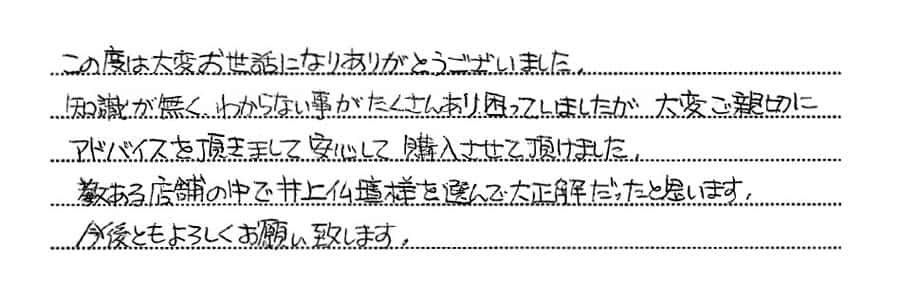 この度は大変お世話になりありがとうございました。
知識が無く、わからない事がたくさんあり困ってしましたが 大変ご親切に
アドバイスを頂きまして安心して購入させて頂けました。
数ある店舗の中で井上仏壇様を選んで大正解だったと思います。
今後ともよろしくお願い致します。